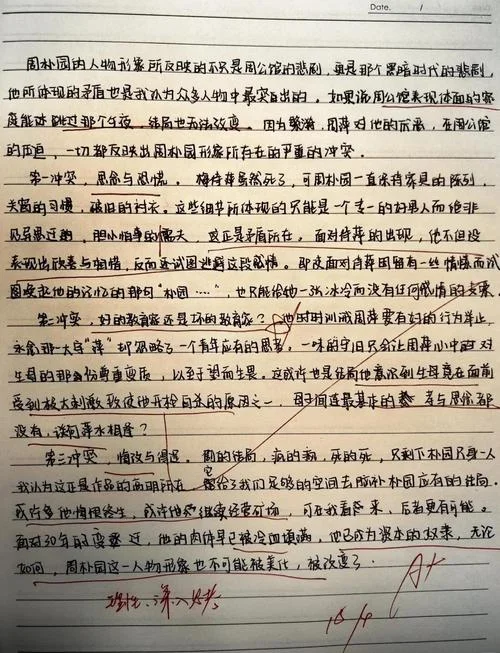 Date. /
周朴园的人物形象所反映的不只是周公馆的悲剧，更是那个黑暗时代的悲剧，
他所体现的矛盾也是我认为众多人物中最突出的。如果说周公馆表现体面的家
庭能逃过那个午夜，结局也无法改变。因为繁漪，周萍对他的厌恶，在周公馆
的压迫，一切都反映出周朴园形象所存在的严重的冲突。
第一冲突，思念与恐慌。梅侍萍虽然死了，可周朴园一直保持家具的陈列，
关窗的习惯，破旧的衬衣。这些细节所体现的只能是一个专一的好男人而绝非
胆小怕事的懦夫，这正是矛盾所在。面对侍萍的出现，他不但没
表现出欣喜与相惜，反而还试图逃避这段感情。那波面对侍萍因留有一丝情愫而试
图唤起他的记忆的那句“朴园……”，也只能给她一张冰冷而没有任何感情的支票。
第二冲突，好的教育家还是坏的教育家？他时时训诫周萍要有好的行为举止，
永念那一大字“萍”却忽略了一个青年应有的思考。一味的守旧只会让周萍心中的对
生母的那份尊重变质，以至于望而生畏。这或许也是结局他意识到生母竟在面前
受到极大刺激致使他开枪自杀的原因之一，母子间连最基本的 爱与思念都
没有，谈何萍水相逢？
第三冲突 悔改与得逞。剧的结局，疯的疯，死的死，只剩下朴园只身一人
我认为这正是作品的高明所在 它留给了我们足够的空间去脑补朴园应有的结局。
或许多他悔恨终生，或许他会继续经营矿场，可在我看来，后者更有可能。
面对30年的变迁过，他的肉体早已被冷血填满，他已成为资本的奴隶，无论
如何，周朴园这一人物形象也不可能被美化，被改变了。
A+